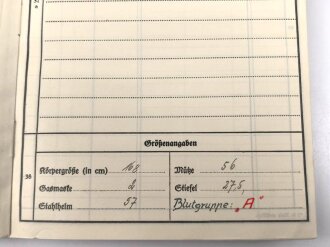 Größenangaben
36
Körpergröße (in cm) 168 Mütze 56
Gasmaske 2 Stiefel 27,5,
Stahlhelm 57 Blutgruppe: „A"